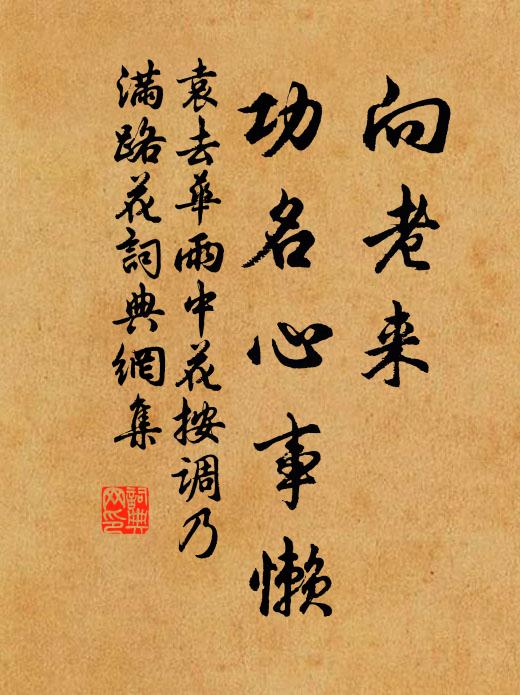 向老来
功名心事懒
袁去華雨中花按调乃
满路花詞典網集
詞典
网印